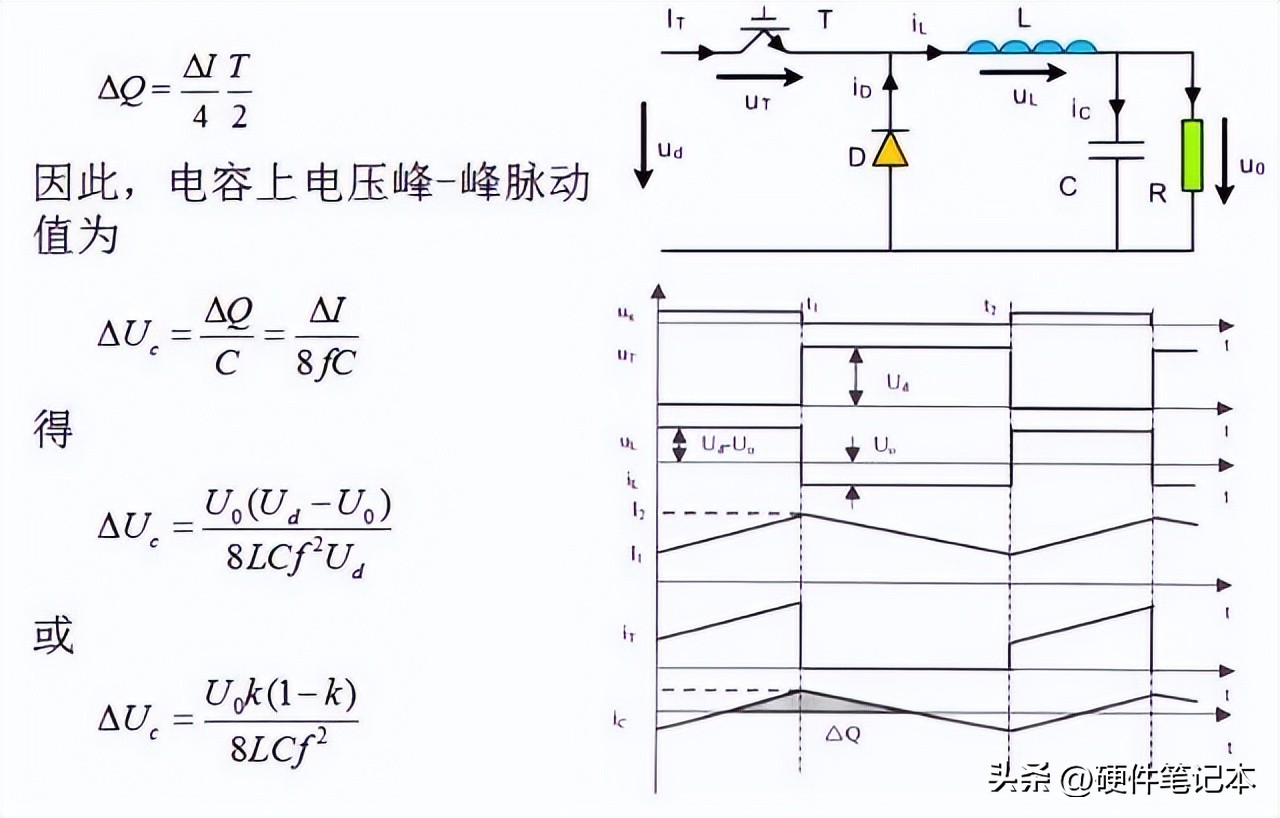 ΔQ = ΔI/4 T/2
因此，电容上电压峰-峰脉动
值为
ΔU_c = ΔQ/C = ΔI/8fC
得
ΔU_c = U_0(U_d − U_0)/8LCf²U_d
或
ΔU_c = U_0k(1−k)/8LCf²
I_T
T
i_L
L
u_T
i_D
u_L
i_C
u_d
D
C
R
u_0
t_1
t_2
t
u_T
U_d
t
u_L
U_d-U_0
U_0
i_L
t
I_2
I_1
t
i_T
t
i_C
ΔQ
t
头条 @硬件笔记本